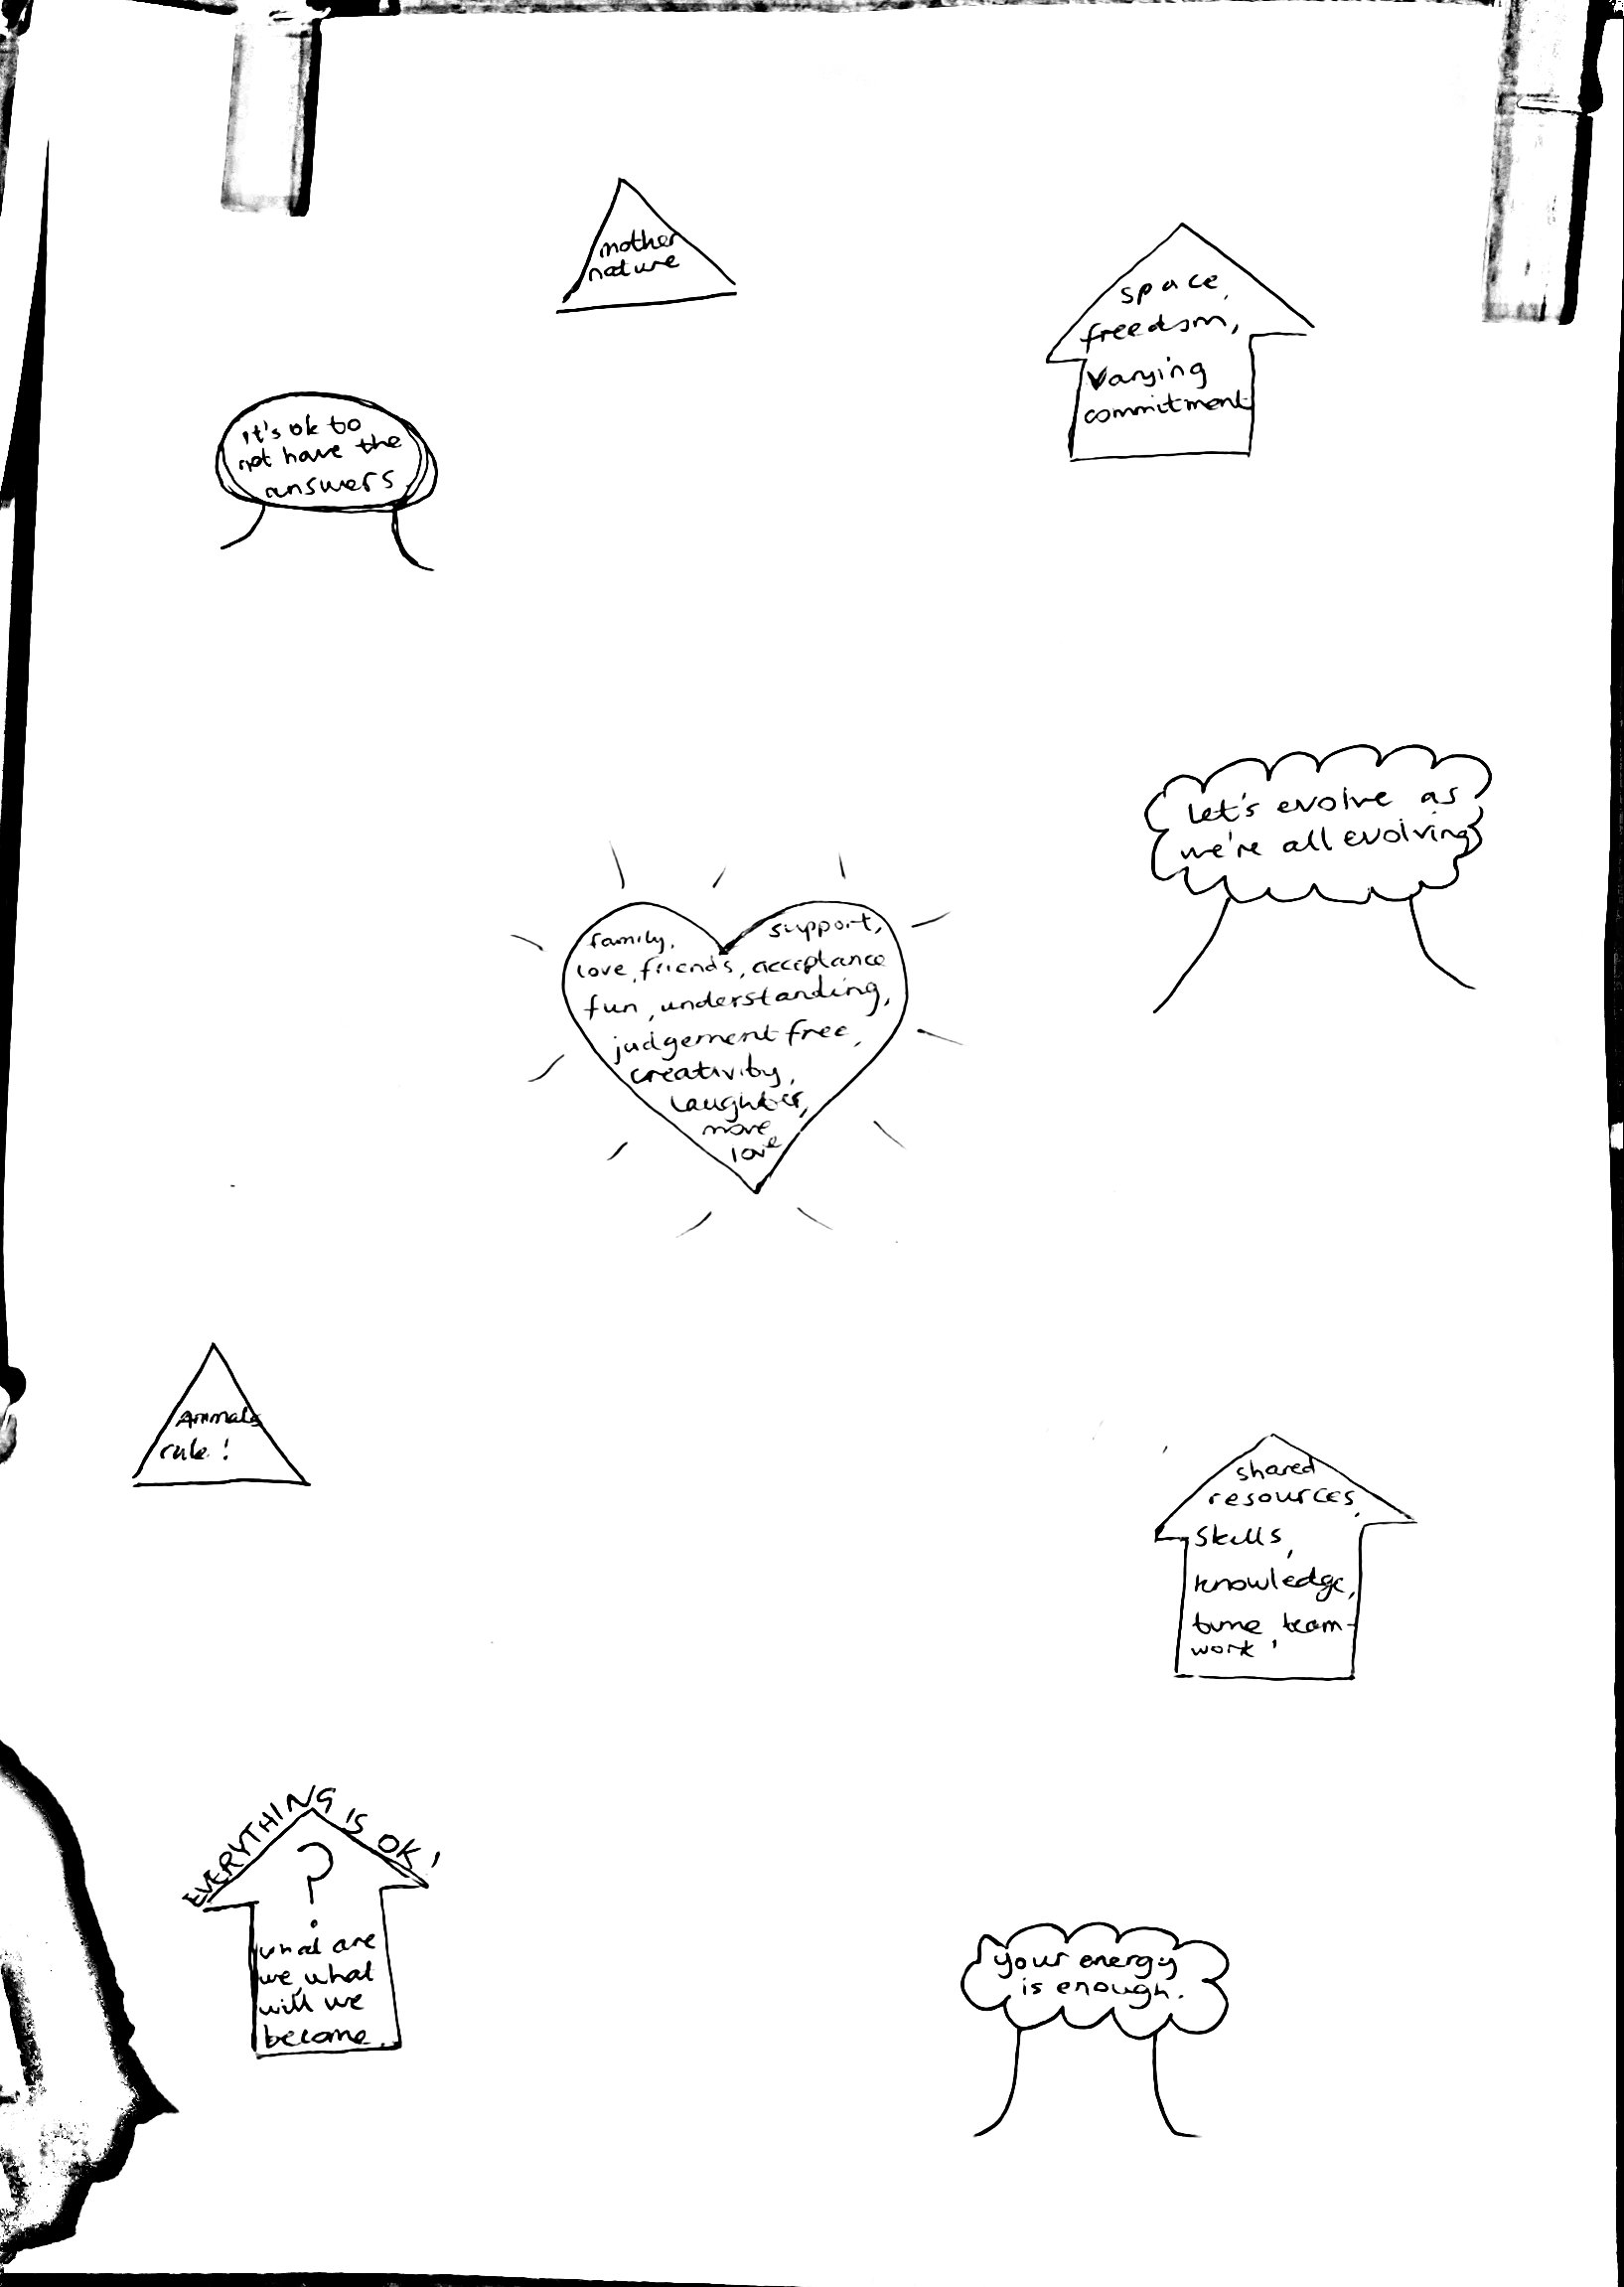 mother
nature
space,
freedom,
Varying
commitment
it's ok to
not have the
answers
Let's evolve as
we're all evolving
family, support,
love, friends, acceptance
fun, understanding,
judgement free,
creativity,
laughter,
more
love
Animals
rule!
shared
resources,
Skills,
knowledge,
time, team-
work
EVERYTHING IS OK!
?
what are
we, what
will we
become.
your energy
is enough.